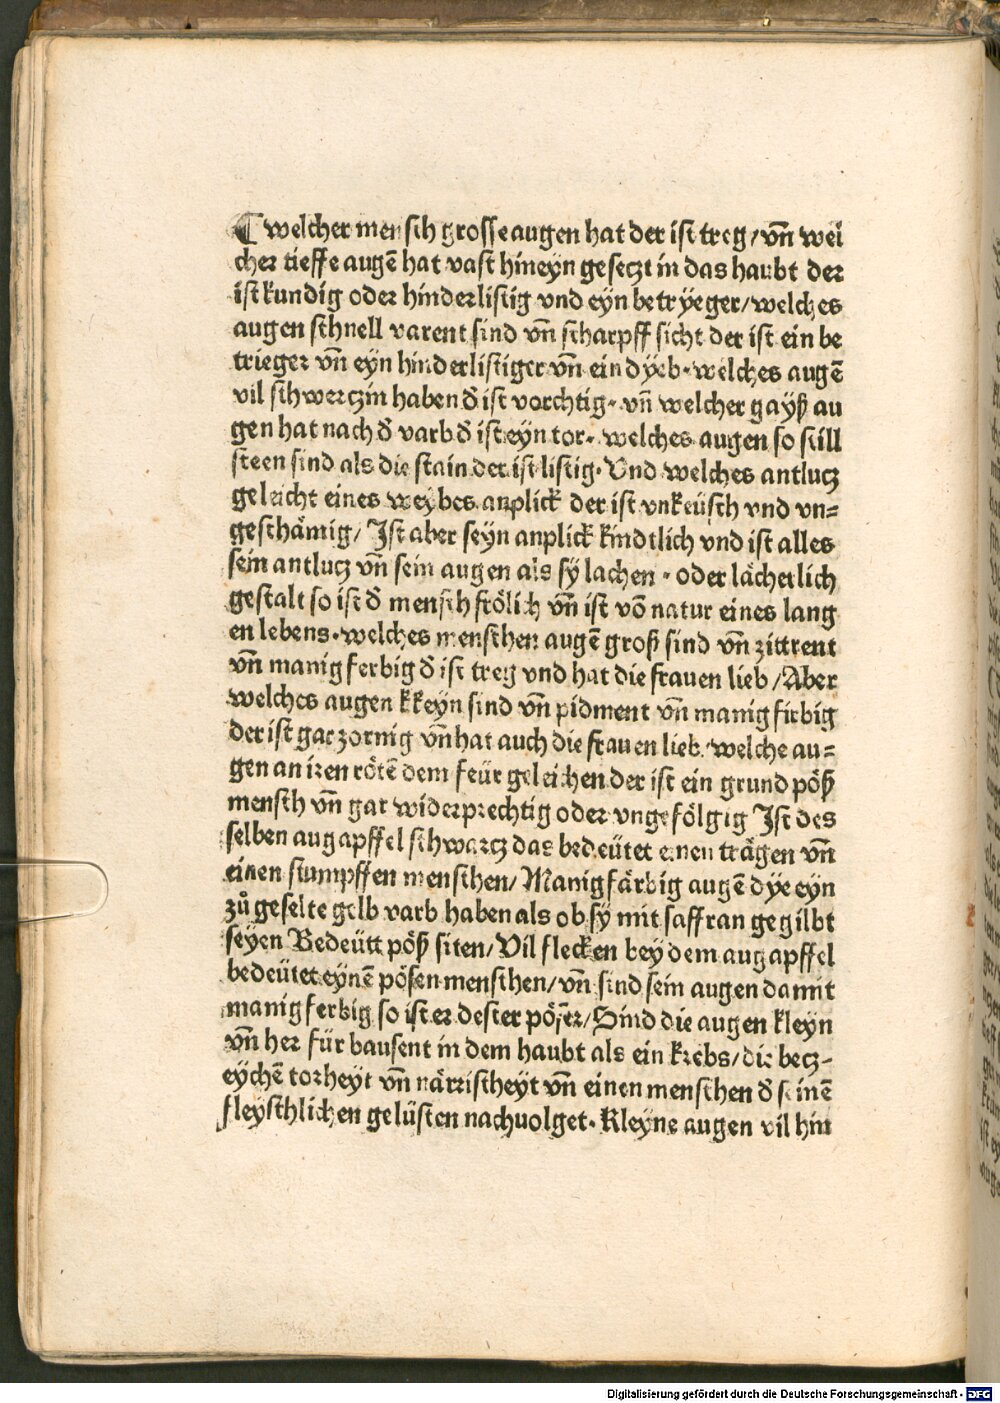 ⸿ welcher mensch grosse augen hat der ist treg / vn̄ wel
cher tieffe augē hat vast hineyn gesetzt in das haubt der
ist kundig oder hinderlistig vnd eyn betryeger / welches
augen schnell varent sind vn̄ scharpff sicht der ist ein be
trieger vn̄ eyn hinderlistiger vn̄ ein dyeb · welches augē
vil schwertzin haben d̄ ist vorchtig · vn̄ welcher gayß au
gen hat nach d̄ varb d̄ ist eyn tor · welches augen so still
steen sind als die stain der ist listig · Vnd welches antlutz
geleicht eines weybes anplick der ist vnkeüsch vnd vn=
geschämig / Ist aber seyn anplick kindtlich vnd ist alles
sein antlutz vn̄ sein augen als sÿ lachen · oder lächerlich
gestalt so ist d̄ mensch frölich vn̄ ist vō natur eines lang
en lebens · welches menschen augē groß sind vn̄ zittrent
vn̄ manig ferbig d̄ ist treg vnd hat die frauen lieb / Aber
welches augen kkeyn sind vn̄ pidment vn̄ manig firbig
der ist gar zornig vn̄ hat auch die frauen lieb · welche au=
gen an iren rötē dem feür geleichen der ist ein grund pöß
mensch vn̄ gar widerprechtig oder vngefölgig Ist des
selben augapffel schwartz das bedeütet einen trägen vn̄
einen stumpffen menschen / Manigfärbig augē dye eyn
zů geselte gelb varb haben als ob sÿ mit saffran gegilbt
seyen Bedeütt pöß siten / Vil flecken bey dem augapffel
bedeütet eynē pösen menschen / vn̄ sind sein augen damit
manig ferbig so ist er dester pöser / Sind die augen kleyn
vn̄ her für bausent in dem haubt als ein krebs / die betz-
eychē torheyt vn̄ närrischeyt vn̄ einen menschen d̄ seinē
fleyschlichen gelüsten nachuolget · Kleyne augen vil hin
Digitalisierung gefördert durch die Deutsche Forschungsgemeinschaft - DFG